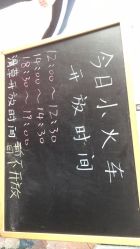 今日小火车
开放时间
12:00~12:30
14:00~14:30
18:30~19:00
滑草开放时间 暂不开放